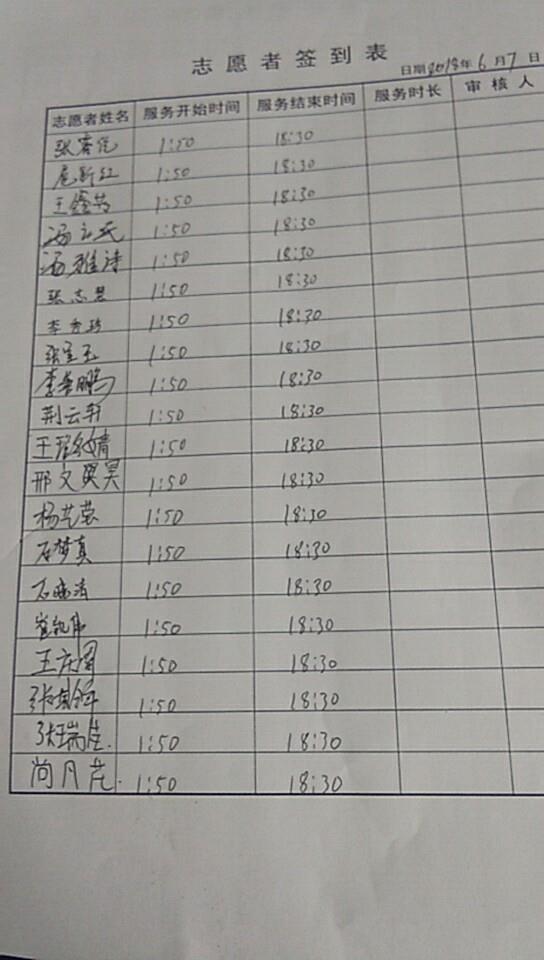 志愿者签到表
日期2018年6月7日
志愿者姓名 服务开始时间 服务结束时间 服务时长 审核人
张睿 1:50 18:30
新红 1:50 18:30
王鑫 1:50 18:30
冯 1:50 18:30
汤雅诗 1:50 18:30
张志慧 1:50 18:30
李秀 1:50 18:30
张宝玉 1:50 18:30
李善鹏 1:50 18:30
荆云轩 1:50 18:30
王 婧 1:50 18:30
邢文昊 1:50 18:30
杨艺 1:50 18:30
石梦真 1:50 18:30
石 1:50 18:30
崔凯 1:50 18:30
王庆国 1:50 18:30
张 1:50 18:30
张瑞佳 1:50 18:30
尚月芹 1:50 18:30